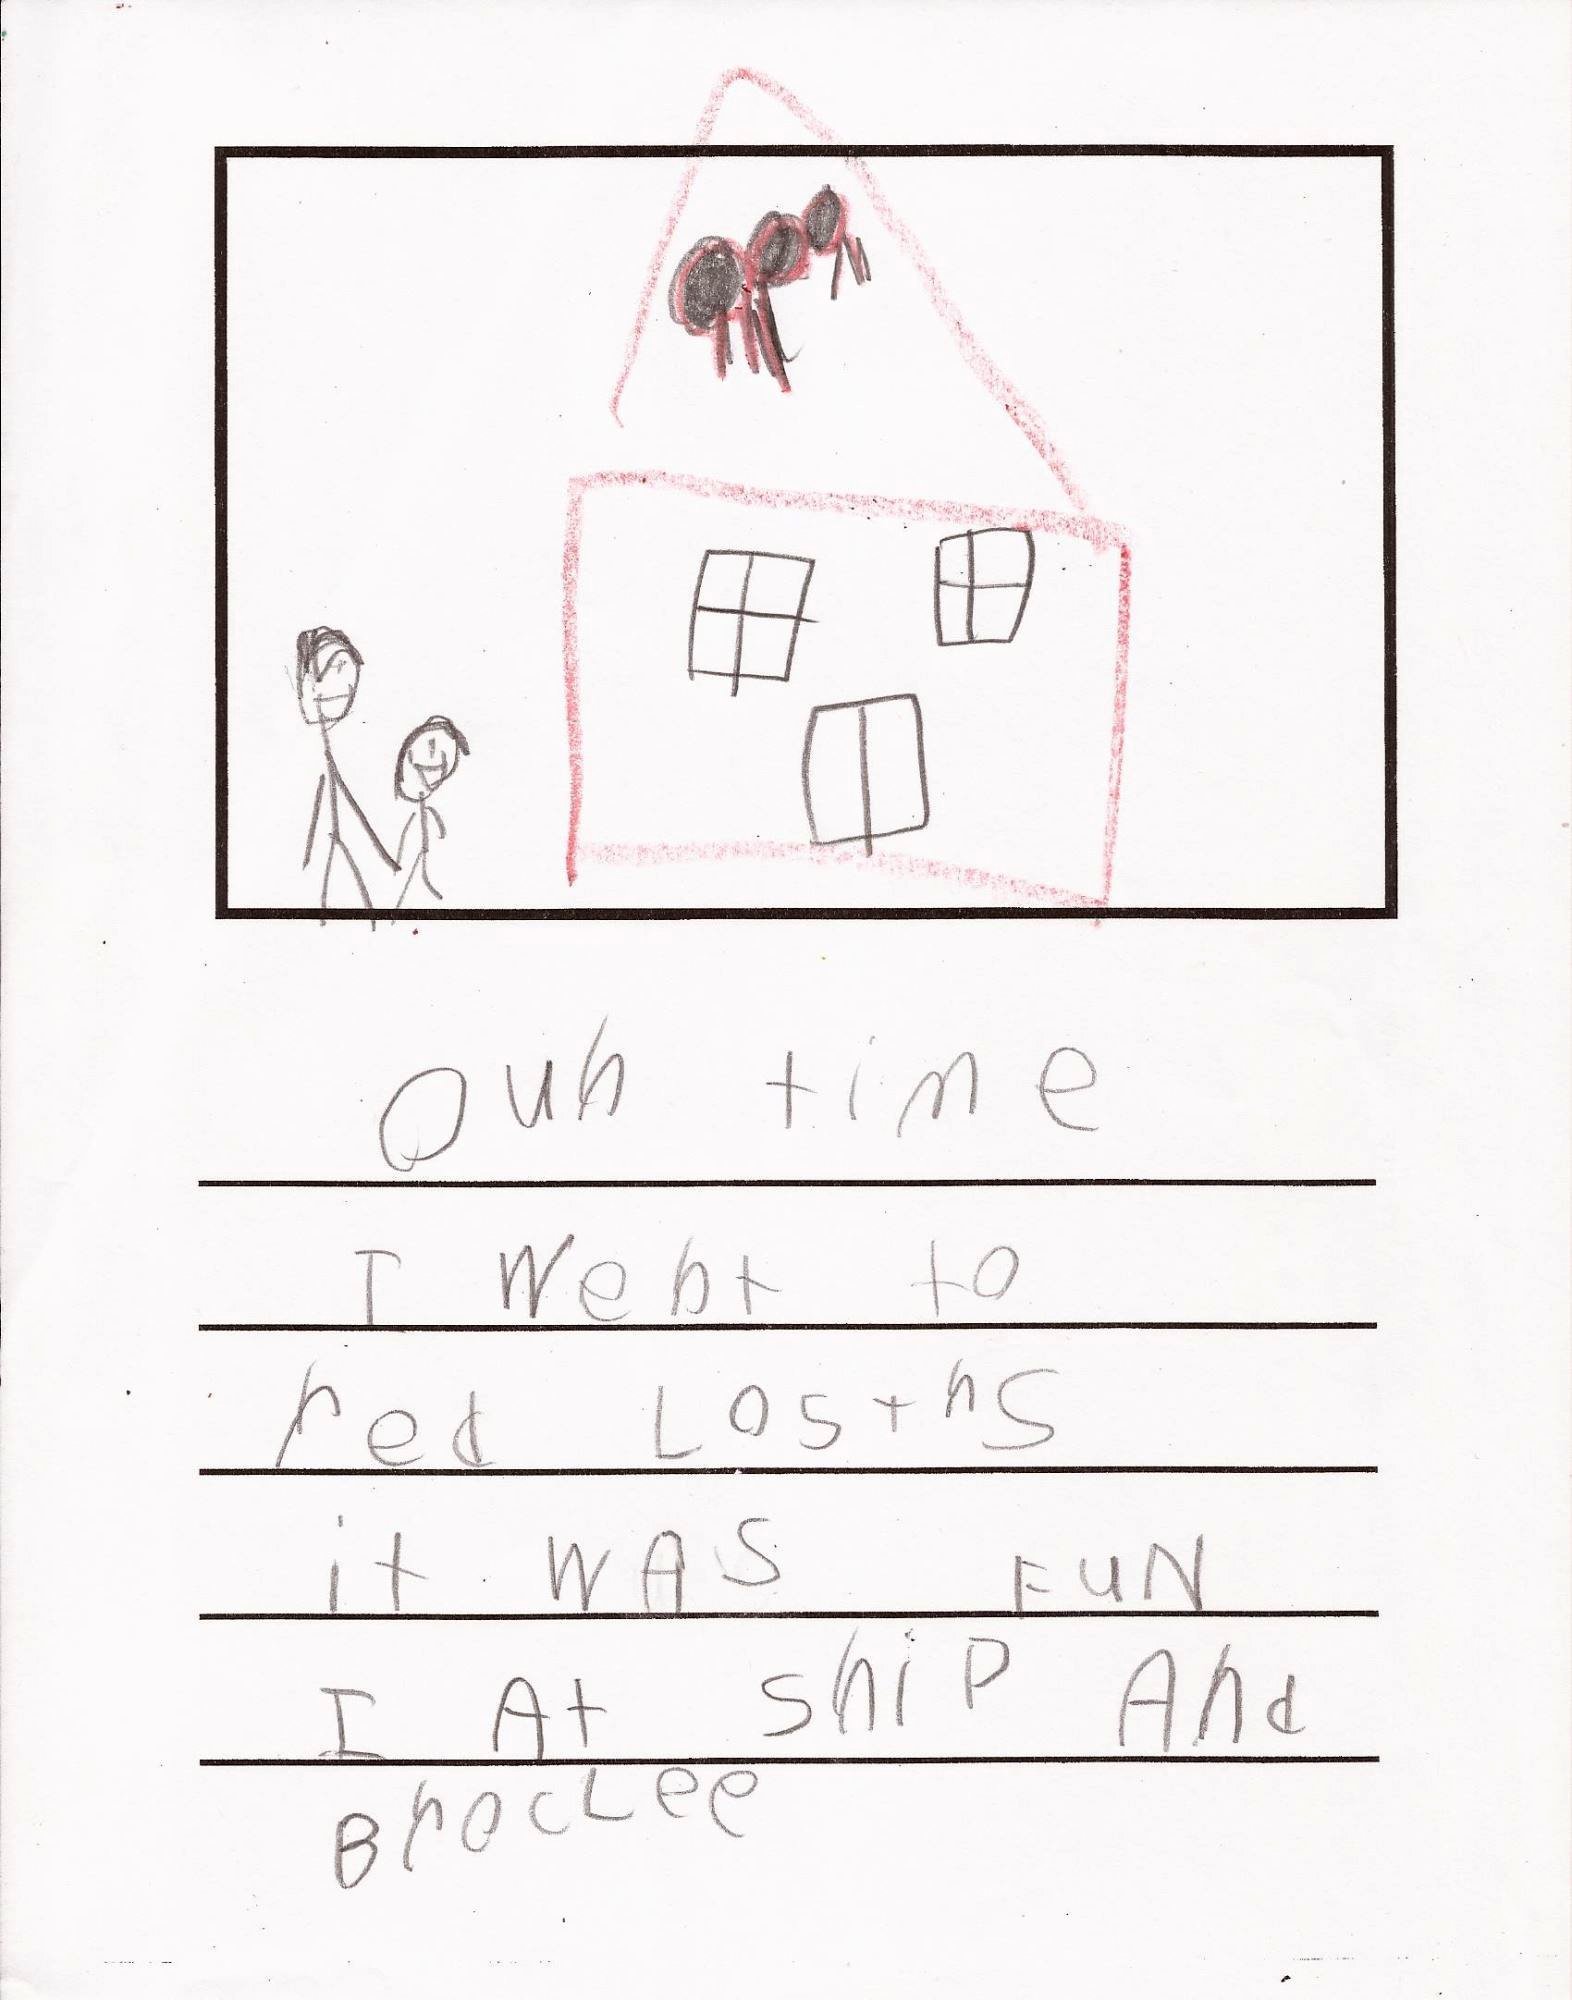 Ouh time
I Weht to
red LOSthS
it WAS FUN
I At ShiP And
BrocLee